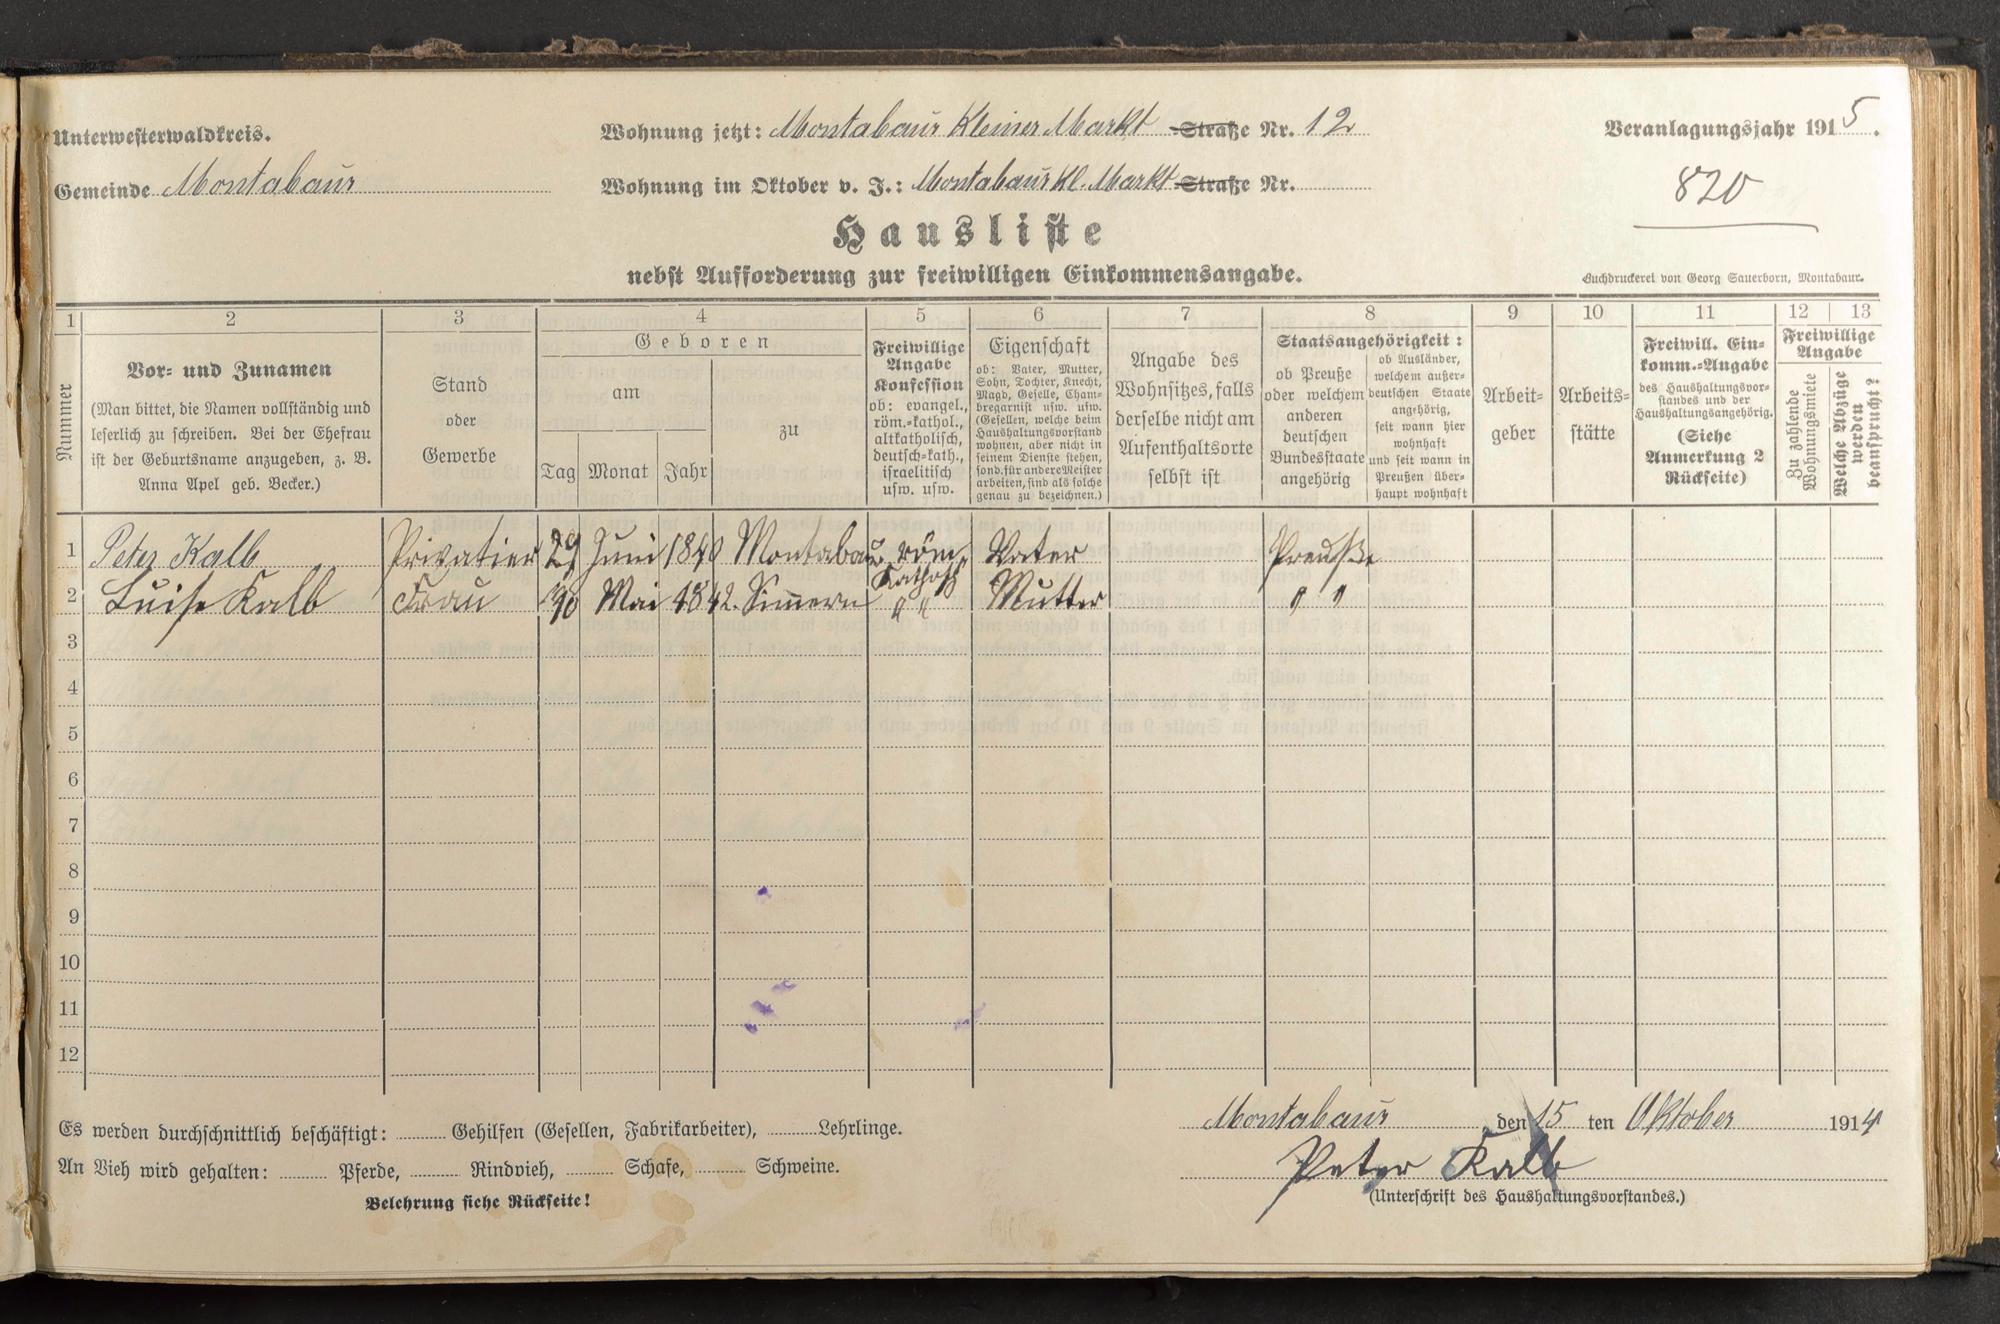 Unterwesterwaldkreis.
Wohnung jetzt: Montabaur Kleiner Markt Straße Nr. 12
Veranlagungsjahr 1915.
Gemeinde Montabaur
Wohnung im Oktober v. J.: Montabaur Kl. Markt Straße Nr.
820
Hausliste
nebst Aufforderung zur freiwilligen Einkommensangabe.
Buchdruckerei von Georg Sauerborn, Montabaur.
1 2 3 4 5 6 7 8 9 10 11 12 13
Nummer
Vor- und Zunamen
(Man bittet, die Namen vollständig und
leserlich zu schreiben. Bei der Ehefrau
ist der Geburtsname anzugeben, z. B.
Anna Apel geb. Becker.)
Stand
oder
Gewerbe
Geboren
am
Tag Monat Jahr
zu
Freiwillige
Angabe
Konfession
ob: evangel.,
röm.-kathol.,
altkatholisch,
deutsch-kath.,
israelitisch
usw. usw.
Eigenschaft
ob: Vater, Mutter,
Sohn, Tochter, Knecht,
Magd, Geselle, Cham-
bregarnist usw. usw.
(Gesellen, welche beim
Haushaltungsvorstand
wohnen, aber nicht in
seinem Dienste stehen,
sond. für andere Meister
arbeiten, sind als solche
genau zu bezeichnen.)
Angabe des
Wohnsitzes, falls
derselbe nicht am
Aufenthaltsorte
selbst ist
Staatsangehörigkeit:
ob Preuße
oder welchem
anderen
deutschen
Bundesstaate
angehörig
ob Ausländer,
welchem außer-
deutschen Staate
angehörig,
seit wann hier
wohnhaft
und seit wann in
Preußen über-
haupt wohnhaft
Arbeit-
geber
Arbeits-
stätte
Freiwill. Ein-
komm.-Angabe
des Haushaltungsvor-
standes und der
Haushaltungsangehörig.
(Siehe
Anmerkung 2
Rückseite)
Freiwillige
Angabe
Zu zahlende
Wohnungsmiete
Welche Abzüge
werden
beansprucht?
1 Peter Kalb Privatier 29 Juni 1840 Montabaur röm. Kathol. Vater Preuße
2 Luise Kalb Frau Mai 1842. Simmern " " Mutter " "
3
4
5
6
7
8
9
10
11
12
Es werden durchschnittlich beschäftigt: Gehilfen (Gesellen, Fabrikarbeiter), Lehrlinge.
Montabaur, den 15 ten Oktober 1914
An Vieh wird gehalten: Pferde, Rindvieh, Schafe, Schweine.
Peter Kalb
Belehrung siehe Rückseite!
(Unterschrift des Haushaltungsvorstandes.)